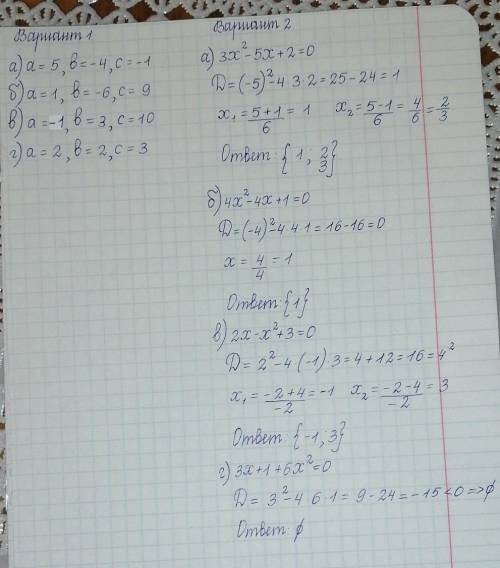 Вариант 1
а) a = 5, b = -4, c = -1
б) a = 1, b = -6, c = 9
в) a = -1, b = 3, c = 10
г) a = 2, b = 2, c = 3
Вариант 2
а) 3x² - 5x + 2 = 0
D = (-5)² - 4 · 3 · 2 = 25 - 24 = 1
x₁ = (5+1)/6 = 1   x₂ = (5-1)/6 = 4/6 = 2/3
Ответ: {1; 2/3}
б) 4x² - 4x + 1 = 0
D = (-4)² - 4 4 1 = 16 - 16 = 0
x = 4/4 = 1
Ответ: {1}
в) 2x - x² + 3 = 0
D = 2² - 4 (-1) 3 = 4 + 12 = 16 = 4²
x₁ = (-2+4)/-2 = -1   x₂ = (-2-4)/-2 = 3
Ответ: {-1, 3}
г) 3x + 1 + 6x² = 0
D = 3² - 4 6 · 1 = 9 - 24 = -15 < 0 => ∅
Ответ: ∅